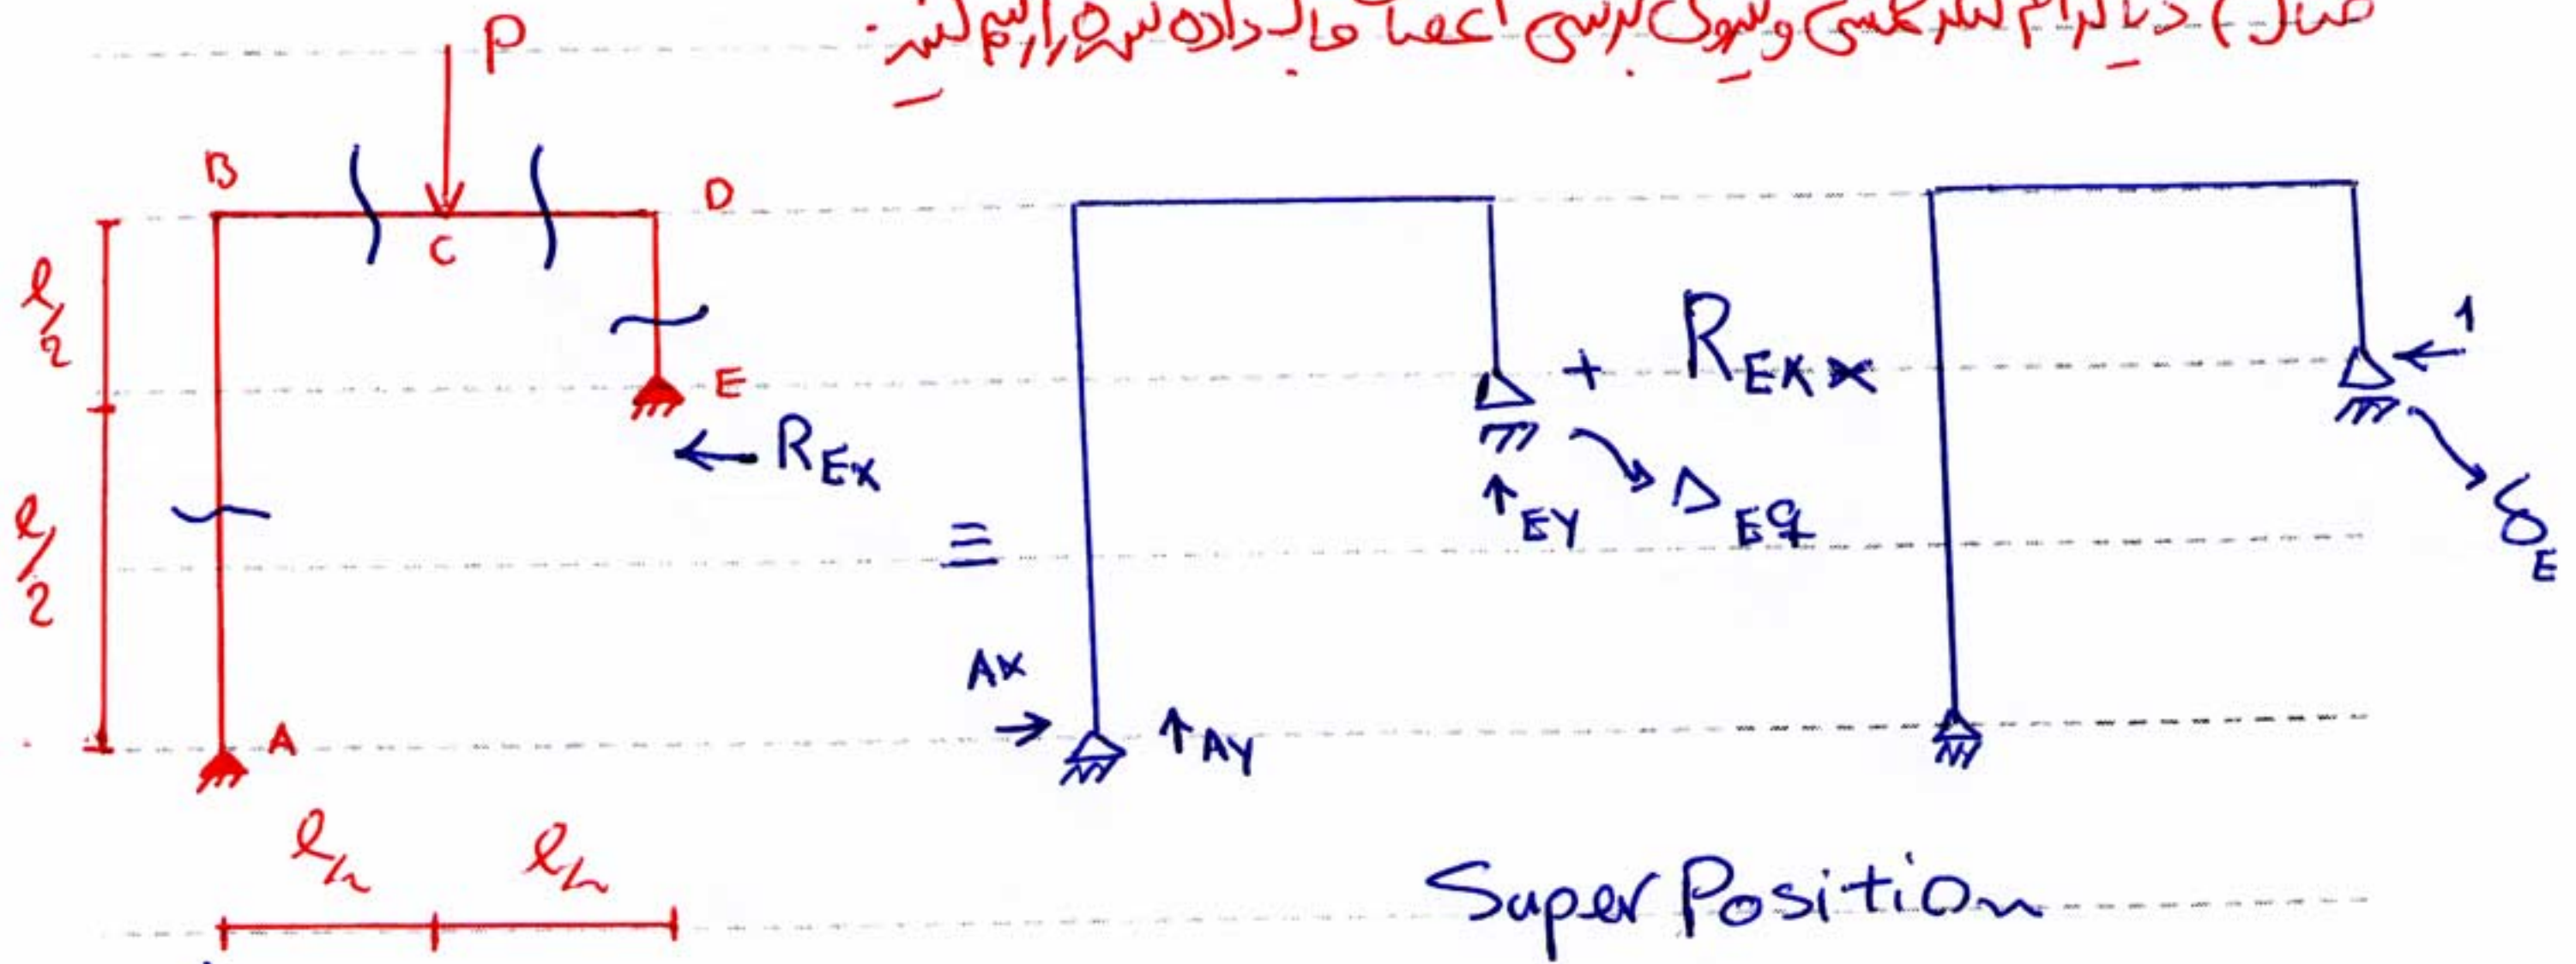 مثال) دیاگرام لنگر خمشی و نیروی برشی اعضا قاب داده شده را رسم کنید.
P
B
D
C
l/2
E
← REx
l/2
A
l/2
l/2
≡
Ax
→
↑Ay
↑EY
ΔEq
+ REx ×
← 1
δE
Super Position